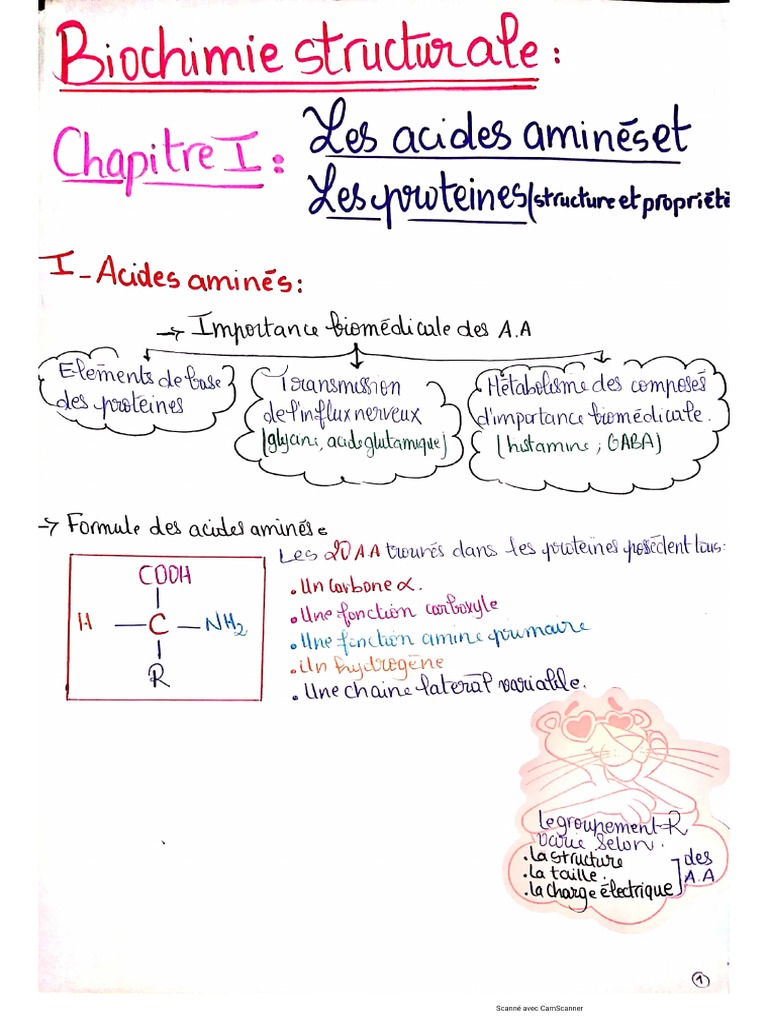 Biochimie structurale :
Chapitre I : Les acides aminés et
Les proteines (structure et propriété
I - Acides aminés :
→ Importance biomédicale des A.A
Elements de base
des proteines
Transmission
de l'influx nerveux
(glycani, acide glutamique)
Métabolisme des composés
d'importance biomédicale.
(histamine ; GABA)
→ Formule des acides aminés
COOH
H — C — NH2
R
Les 20 AA trouvés dans les proteines possèdent tous :
• Un carbone α.
• Une fonction carboxyle
• Une fonction amine primaire
• Un hydrogène
• Une chaine latéral variable.
le groupement-R
varie selon.
• la structure
• la taille.
• la charge électrique
des
A.A
1
Scanné avec CamScanner